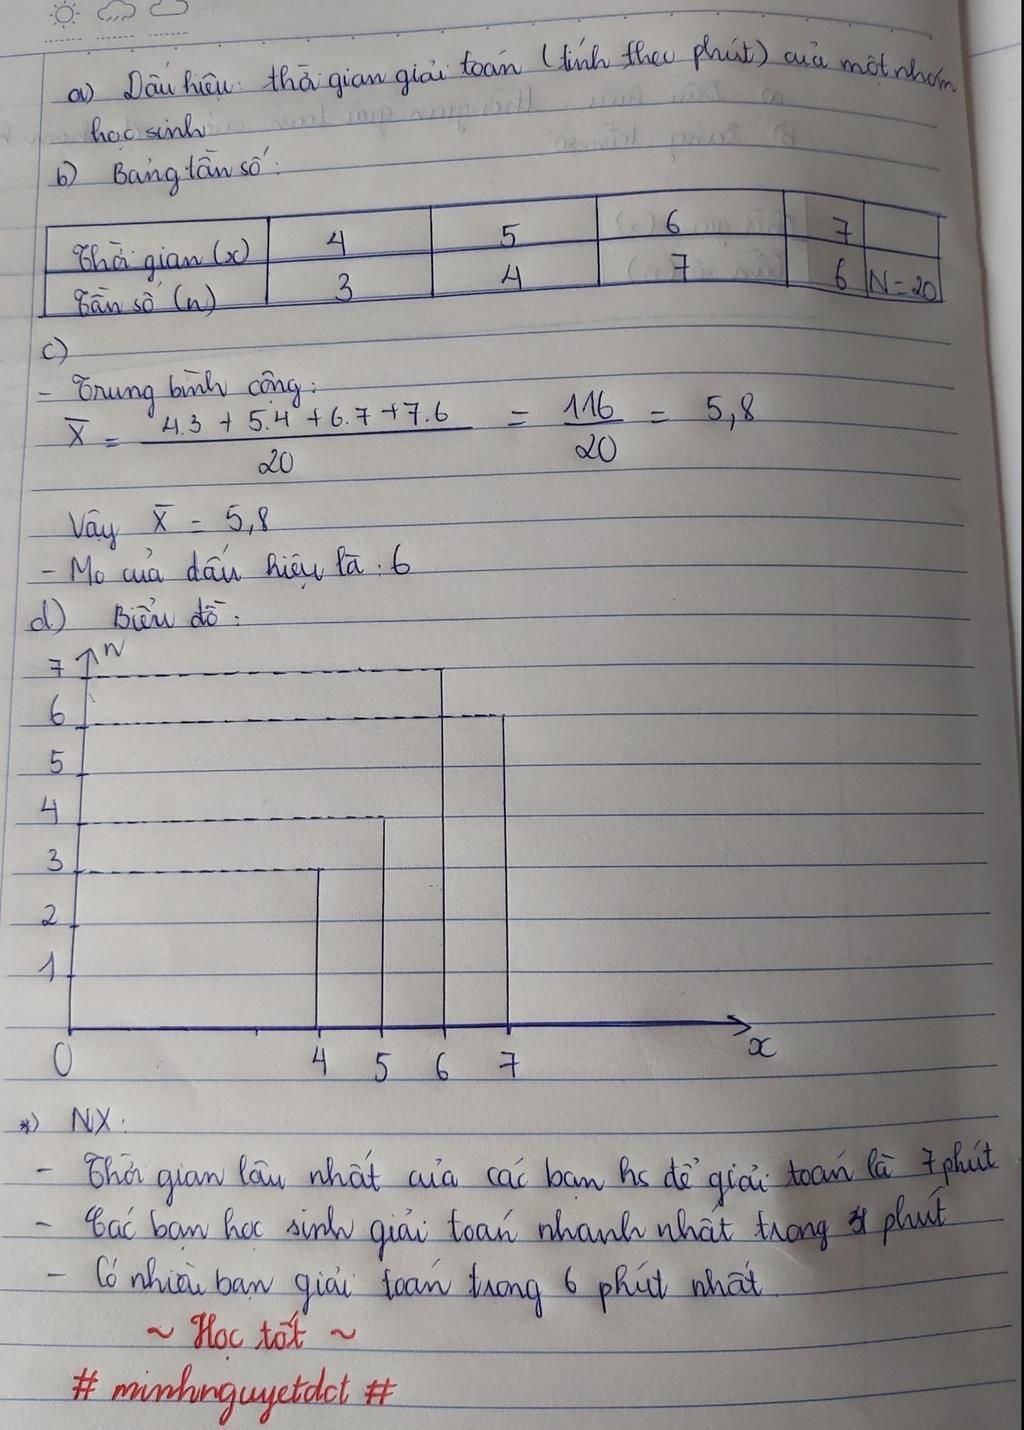 a) Dấu hiệu: thời gian giải toán (tính theo phút) của một nhóm
học sinh
b) Bảng tần số:
Thời gian (x) 4 5 6 7
Tần số (n) 3 4 7 6 N=20
c)
- Trung bình cộng:
X̄ = (4.3 + 5.4 + 6.7 + 7.6)/20 = 116/20 = 5,8
Vậy X̄ = 5,8
- Mo của dấu hiệu là: 6
d) Biểu đồ:
n
7
6
5
4
3
2
1
0 4 5 6 7 x
*) NX:
- Thời gian lâu nhất của các bạn hs để giải toán là 7 phút
- Các bạn học sinh giải toán nhanh nhất trong 4 phút
- Có nhiều bạn giải toán trong 6 phút nhất
~ Học tốt ~
# minhnguyetdct #